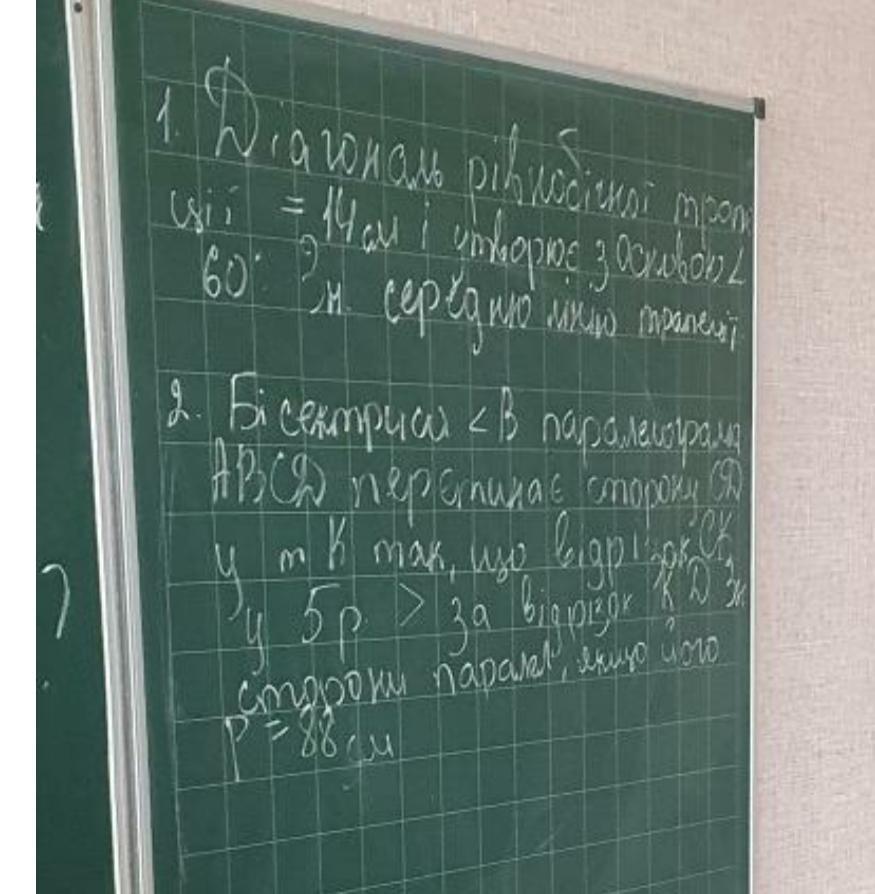 1. Діагональ рівнобічної трапе
ції = 14 см і утворює з основою ∠
60°. Зн. середню лінію трапеції.
2. Бісектриси ∠B паралелограма
ABCD перетинає сторону CD
у т K так, що відрізок CK
у 5 р. > за відрізок KD Зн
сторони паралел, якщо його
P = 88 см
?